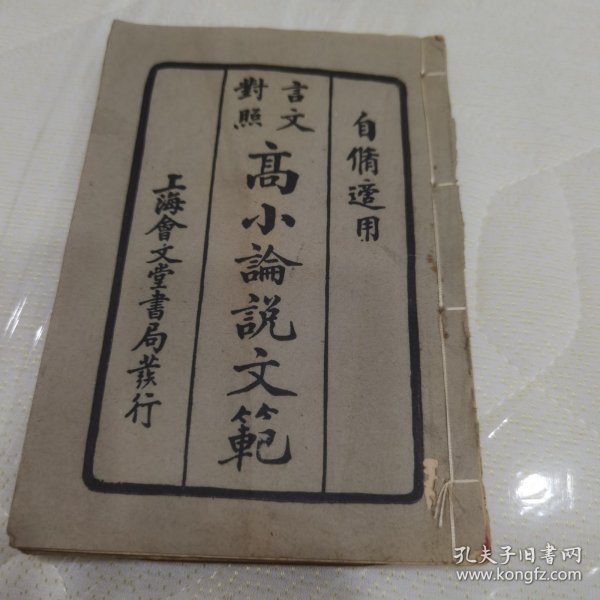 自脩適用
言文
對照
高小論說文範
上海會文堂書局發行
孔夫子旧书网
www.kongfz.com